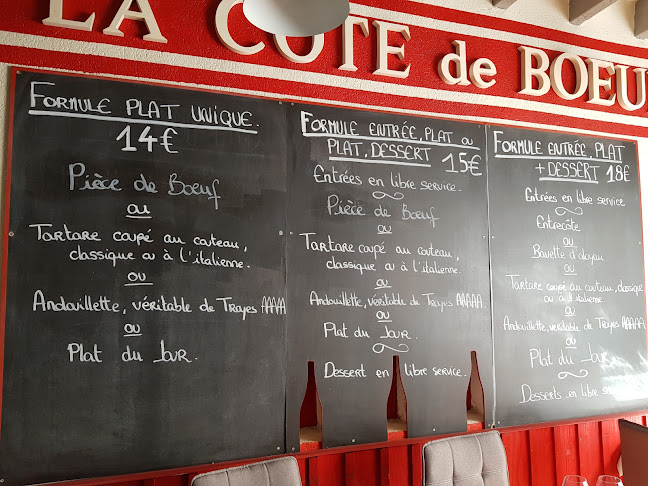 LA CÔTE de BOEU
FORMULE PLAT UNIQUE.
14€
Pièce de Boeuf
ou
Tartare coupé au couteau,
classique ou à l'italienne.
ou
Andouillette, véritable de Troyes AAAAA
ou
Plat du Jour.
FORMULE ENTRÉE, PLAT ou
PLAT, DESSERT 15€
Entrées en libre service.
Pièce de Boeuf
ou
Tartare coupé au couteau,
classique ou à l'italienne.
ou
Andouillette, véritable de Troyes AAAAA
ou
Plat du Jour.
Dessert en libre service.
FORMULE ENTRÉE, PLAT
+ DESSERT 18€
Entrées en libre service.
Entrecôte
ou
Bavette d'aloyau
ou
Tartare coupé au couteau, classique
ou à l'italienne
ou
Andouillette, véritable de Troyes AAAAA
ou
Plat du Jour.
Desserts en libre